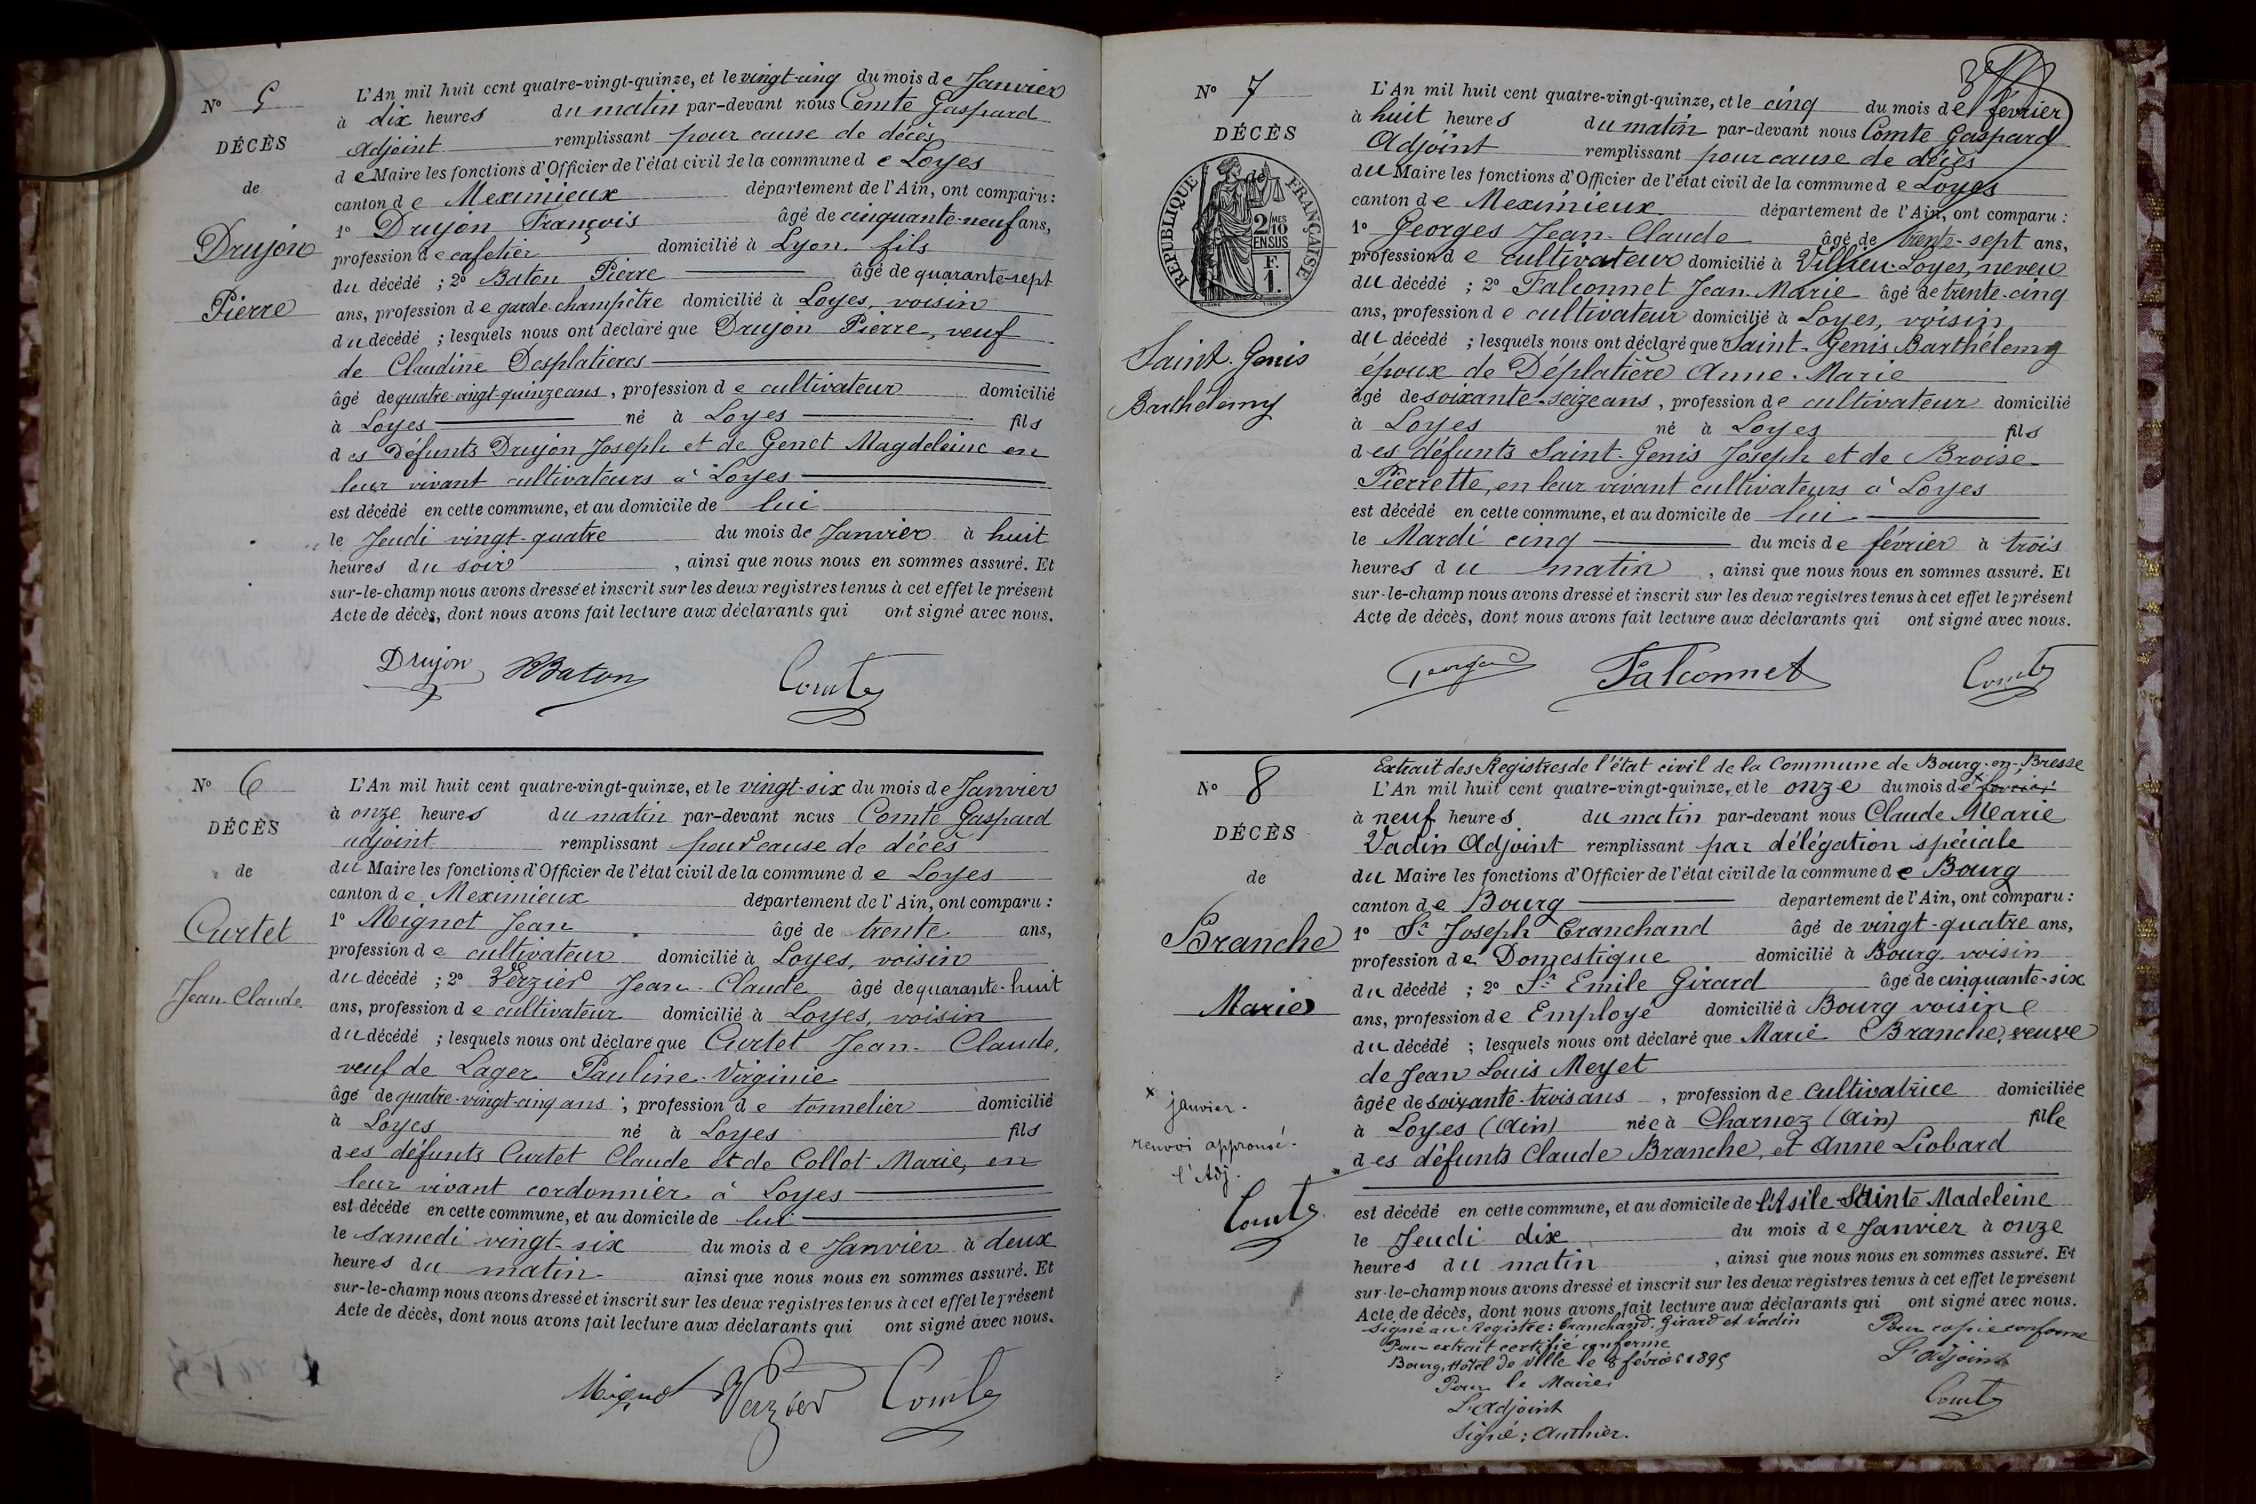 N° 5
DÉCÈS
de
Drujon
Pierre
L'An mil huit cent quatre-vingt-quinze, et le vingt-cinq du mois de Janvier
à dix heures du matin par-devant nous Comte Gaspard
adjoint remplissant pour cause de décès
de Maire les fonctions d'Officier de l'état civil de la commune de Loyes
canton de Meximieux département de l'Ain, ont comparu :
1° Drujon François âgé de cinquante-neuf ans,
profession de cafetier domicilié à Lyon, fils
du décédé ; 2° Baton Pierre âgé de quarante-sept
ans, profession de garde-champêtre domicilié à Loyes, voisin
du décédé ; lesquels nous ont déclaré que Drujon Pierre, veuf
de Claudine Desplatieres
âgé de quatre-vingt-quinze ans, profession de cultivateur domicilié
à Loyes né à Loyes fils
des défunts Drujon Joseph et de Genet Magdeleine en
leur vivant cultivateurs à Loyes
est décédé en cette commune, et au domicile de lui
le Jeudi vingt-quatre du mois de Janvier à huit
heures du soir, ainsi que nous nous en sommes assuré. Et
sur-le-champ nous avons dressé et inscrit sur les deux registres tenus à cet effet le présent
Acte de décès, dont nous avons fait lecture aux déclarants qui ont signé avec nous.
Drujon Baton Comte
N° 6
DÉCÈS
de
Curtet
Jean-Claude
L'An mil huit cent quatre-vingt-quinze, et le vingt-six du mois de Janvier
à onze heures du matin par-devant nous Comte Gaspard
adjoint remplissant pour cause de décès
du Maire les fonctions d'Officier de l'état civil de la commune de Loyes
canton de Meximieux département de l'Ain, ont comparu :
1° Mignot Jean âgé de trente ans,
profession de cultivateur domicilié à Loyes, voisin
du décédé ; 2° Verzier Jean-Claude âgé de quarante-huit
ans, profession de cultivateur domicilié à Loyes, voisin
du décédé ; lesquels nous ont déclaré que Curtet Jean-Claude,
veuf de Lager Pauline-Virginie
âgé de quatre-vingt-cinq ans, profession de tonnelier domicilié
à Loyes né à Loyes fils
des défunts Curtet Claude et de Collot Marie, en
leur vivant cordonnier à Loyes
est décédé en cette commune, et au domicile de lui
le samedi vingt-six du mois de Janvier à deux
heures du matin ainsi que nous nous en sommes assuré. Et
sur-le-champ nous avons dressé et inscrit sur les deux registres tenus à cet effet le présent
Acte de décès, dont nous avons fait lecture aux déclarants qui ont signé avec nous.
Mignot Verzier Comte
N° 7
DÉCÈS
de
RÉPUBLIQUE FRANÇAISE
2/10 MES
EN SUS
F.
1.
Saint-Genis
Barthélemy
L'An mil huit cent quatre-vingt-quinze, et le cinq du mois de février
à huit heures du matin par-devant nous Comte Gaspard
Adjoint remplissant pour cause de décès
du Maire les fonctions d'Officier de l'état civil de la commune de Loyes
canton de Meximieux département de l'Ain, ont comparu :
1° Georges Jean-Claude âgé de trente-sept ans,
profession de cultivateur domicilié à Villieu-Loyes, neveu
du décédé ; 2° Falconnet Jean-Marie âgé de trente-cinq
ans, profession de cultivateur domicilié à Loyes, voisin
du décédé ; lesquels nous ont déclaré que Saint-Genis Barthélemy
époux de Déplatière Anne-Marie
âgé de soixante-seize ans, profession de cultivateur domicilié
à Loyes né à Loyes fils
des défunts Saint-Genis Joseph et de Broise
Pierrette, en leur vivant cultivateurs à Loyes
est décédé en cette commune, et au domicile de lui
le Mardi cinq du mois de février à trois
heures du matin, ainsi que nous nous en sommes assuré. Et
sur-le-champ nous avons dressé et inscrit sur les deux registres tenus à cet effet le présent
Acte de décès, dont nous avons fait lecture aux déclarants qui ont signé avec nous.
Georges Falconnet Comte
N° 8
DÉCÈS
de
Branche
Marie
x janvier.
renvoi approuvé.
l'Adj.
Comte
Extrait des Registres de l'état civil de la Commune de Bourg-en-Bresse
L'An mil huit cent quatre-vingt-quinze, et le onze du mois de x février
à neuf heures du matin par-devant nous Claude Marie
Vadin Adjoint remplissant par délégation spéciale
du Maire les fonctions d'Officier de l'état civil de la commune de Bourg
canton de Bourg département de l'Ain, ont comparu :
1° Sr Joseph Cranchand âgé de vingt-quatre ans,
profession de Domestique domicilié à Bourg voisin
du décédé ; 2° Sr Emile Girard âgé de cinquante-six
ans, profession de Employé domicilié à Bourg voisin e
du décédé ; lesquels nous ont déclaré que Marie Branche, veuve
de Jean Louis Meyet
âgée de soixante-trois ans, profession de cultivatrice domiciliée
à Loyes (Ain) née à Charnoz (Ain) fille
des défunts Claude Branche, et Anne Liobard
est décédé en cette commune, et au domicile de l'Asile Sainte Madeleine
le Jeudi dix du mois de Janvier à onze
heures du matin, ainsi que nous nous en sommes assuré. Et
sur-le-champ nous avons dressé et inscrit sur les deux registres tenus à cet effet le présent
Acte de décès, dont nous avons fait lecture aux déclarants qui ont signé avec nous.
Signé au Registre : Cranchand, Girard et Vadin
Pour extrait certifié conforme
Bourg, Hôtel de Ville le 8 février 1895
Pour le Maire
L'adjoint
Signé : Authier.
Pour copie conforme
L'adjoint
Comte